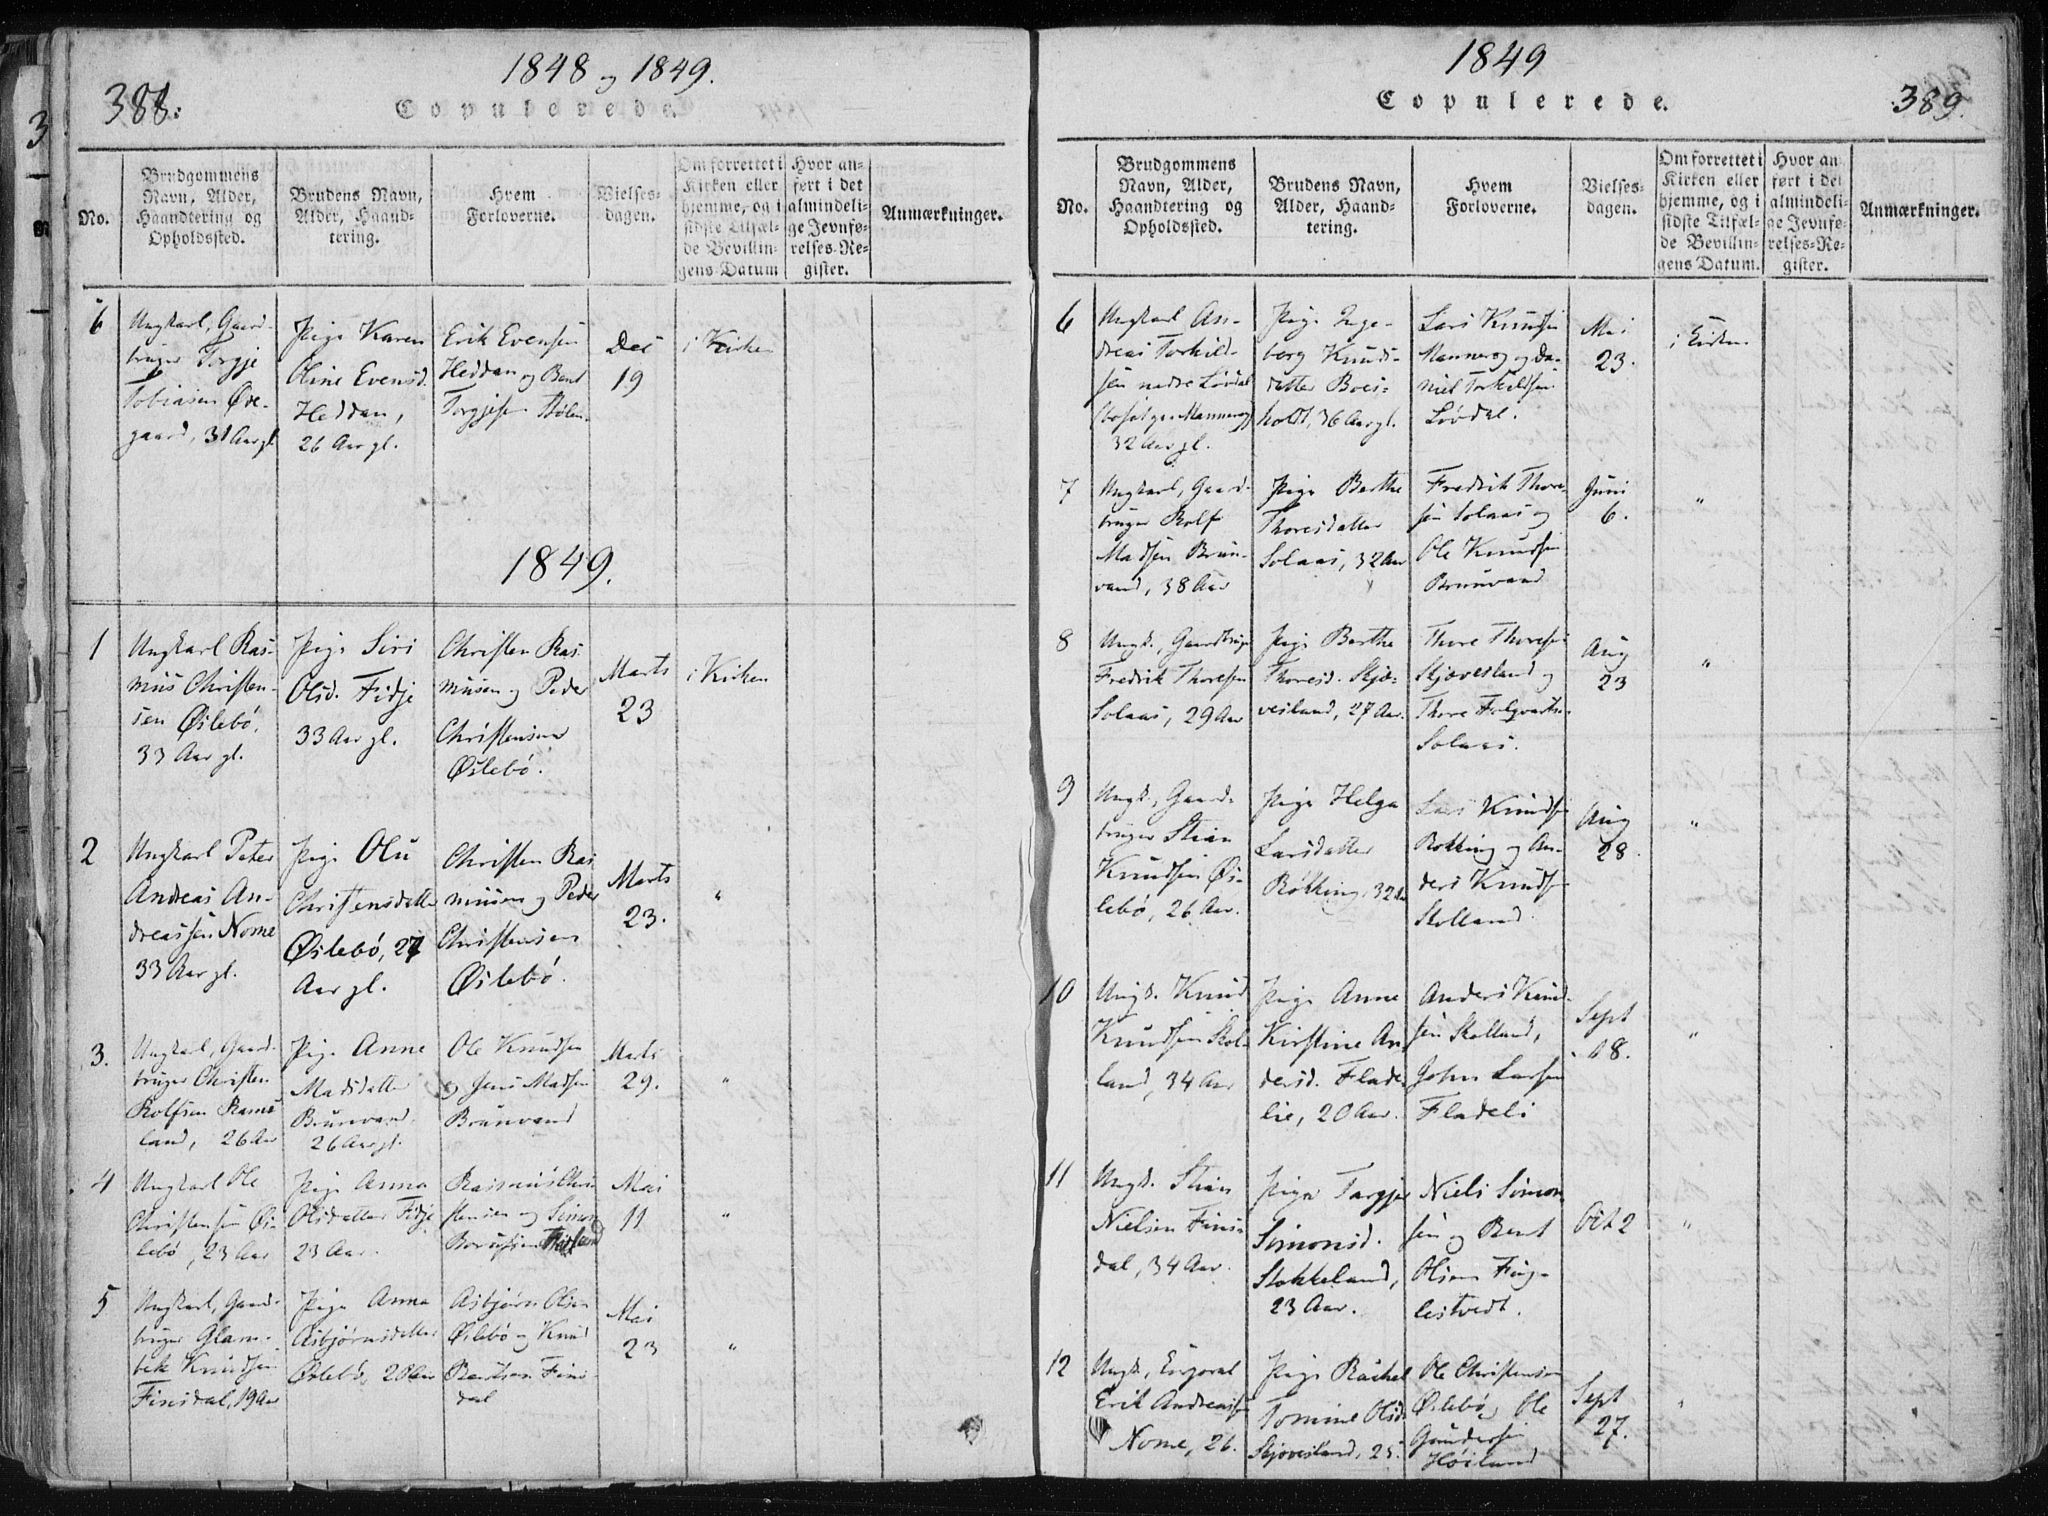 388.
1848 og 1849.
Copulerede.
No.
Brudgommens
Navn, Alder,
Haandtering og
Opholdssted.
Brudens Navn,
Alder, Haand-
tering.
Hvem
Forloverne.
Vielses-
dagen.
Om forrettet i
Kirken eller
hjemme, og i
sidste Tilfæl-
de Bevillin-
gens Datum
Hvor an-
ført i det
almindeli-
ge Jevnfø-
relses-Re-
gister.
Anmærkninger.
6
Ungkarl, Gaard-
bruger Torgje
Tobiasen Øde-
gaard, 31 Aar gl.
Pige Karen
Oline Evensd.
Heddan,
26 Aar gl.
Erik Evensen
Heddan og Bent
Torgjesen
Dec
19
i Kirken
1849.
1
Ungkarl Ras-
mus Christen-
sen Øslebö,
33 Aar gl.
Pige Siri
Olsd. Fidje
33 Aar gl.
Christen Ras-
musen og Peder
Christensen
Øslebö.
Marts
23
i Kirken
2
Ungkarl Peter
Andreas An-
dreassen Nome
33 Aar gl.
Pige Olu
Christensdatter
Øslebö, 27
Aar gl.
Christen Ras
musen og Peder
Christensen
Øslebö.
Marts
23.
"
3.
Ungkarl, Gaard-
bruger Christen
Rolfsen Rams
land, 26 Aar
Pige Anne
Madsdatter
Brunvand,
26 Aar gl.
Ole Knudsen
og Jens Madsen
Brunvand
Marts
29.
"
4
Ungkarl Ole
Christensen Øs-
lebö, 23 Aar
Pige Anna
Olsdatter Fidje
23 Aar.
Rasmus Chri
stensen og Simon
Mai
11
"
5
Ungkarl, Gaard-
bruger Glam-
bek Knudsen
Finsdal, 19 Aar
Pige Anna
Asbjørnsdatter
Øslebö, 20 Aar
Asbjørn Olsen
Øslebö og Knud
Bentsen Fins-
dal
Mai
23
"
1849
Copulerede.
389.
No.
Brudgommens
Navn, Alder,
Haandtering og
Opholdssted.
Brudens Navn,
Alder, Haand-
tering.
Hvem
Forloverne.
Vielses-
dagen.
Om forrettet i
Kirken eller
hjemme, og i
sidste Tilfæl-
de Bevillin-
gens Datum.
Hvor an
ført i det
almindeli-
ge Jevnfø-
relses-Re-
gister.
Anmærkninger.
6
Ungkarl An-
dreas Torkild-
sen nedre Lövdal
32 Aar gl.
Pige Inge-
borg Knuds-
datter Boes-
holdt, 36 Aar gl.
Lars Knudsen
Mannerog og Da-
niel Torkeldsen
Lövdal.
Mai
23.
i Kirken
7
Ungkarl, Gaard-
bruger Rolf
Madsen Brun-
vand, 38 Aar
Pige Berthe
Thoresdatter
Solaas, 32 Aar
Fredrik Thore-
sen Solaas og
Ole Knudsen
Brunvand
Juni
6.
"
8
Ungk., Gaardbruger
Fredrik Thoresen
Solaas, 29 Aar
Pige Berthe
Thoresd. Skjæ-
vesland, 27 Aar.
Thore Thoresen
Skjævesland og
Thore
Solaas.
Aug
23
"
9
Ungk., Gaard-
bruger Stian
Knudsen Øs-
lebö, 26 Aar.
Pige Helga
Larsdatter
Røkking, 32 Aar
Lars Knudsen
Rokking og An-
ders Knudsen
Skolland.
Aug
28.
"
10
Ungk. Knud
Knudsen Skol-
land, 34 Aar
Pige Anne
Kirstine An-
dersd. Flade
lie, 20 Aar.
Anders Knud-
sen Skolland,
John Larsen
Fladeli
Sept
18.
"
11
Ungk. Stian
Nielsen Fins-
dal, 34 Aar.
Pige Torgjer
Simonsd.
Stokkeland,
23 Aar.
Niels Simon
sen og Bent
Olsen Fug-
lestvedt.
Oct 2
"
12
Ungk., Corporal
Erik Andreassen
Nome, 26.
Pige Rachel
Tomine Olsd.
Skjævesland, 25
Ole Christensen
Øslebö, og Ole
Gundersen
Höiland
Sept
27.
"